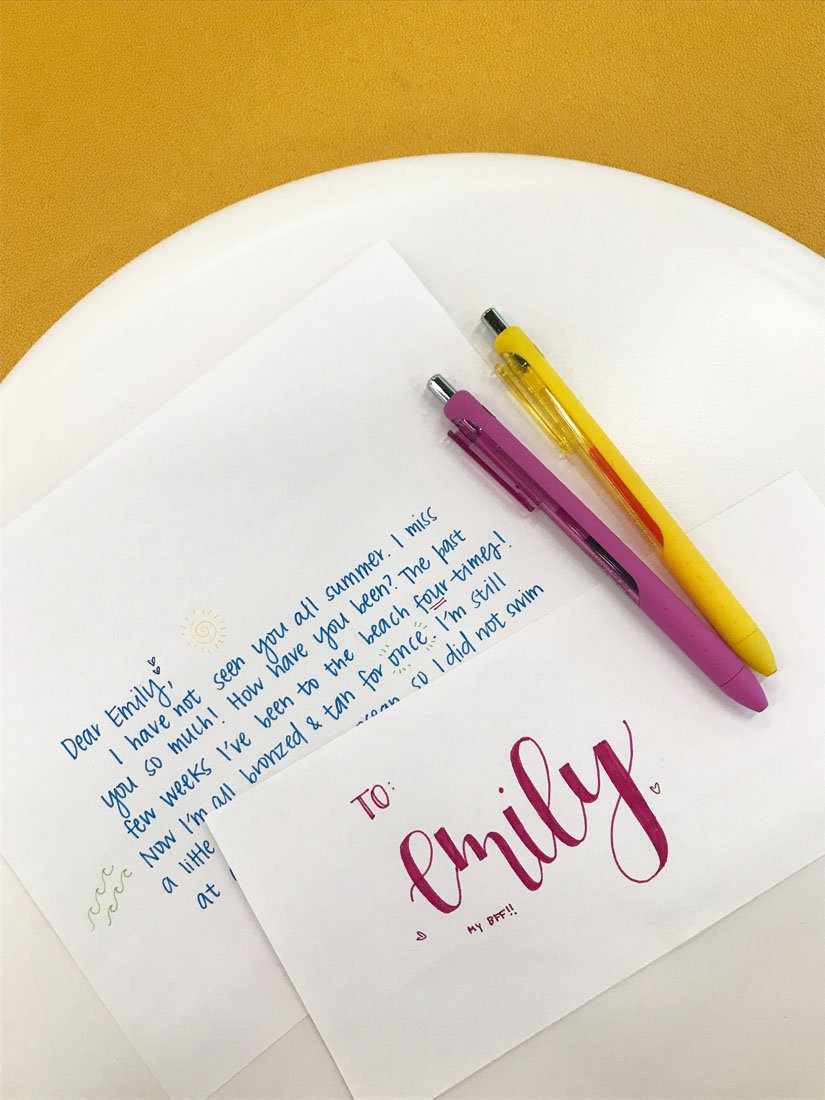 Dear Emily,
I have not seen you all summer. I miss
you so much! How have you been? The past
few weeks I've been to the beach four times!
Now I'm all bronzed & tan for once. I'm still
a little so I did not swim
at
TO:
emily
MY BFF!!